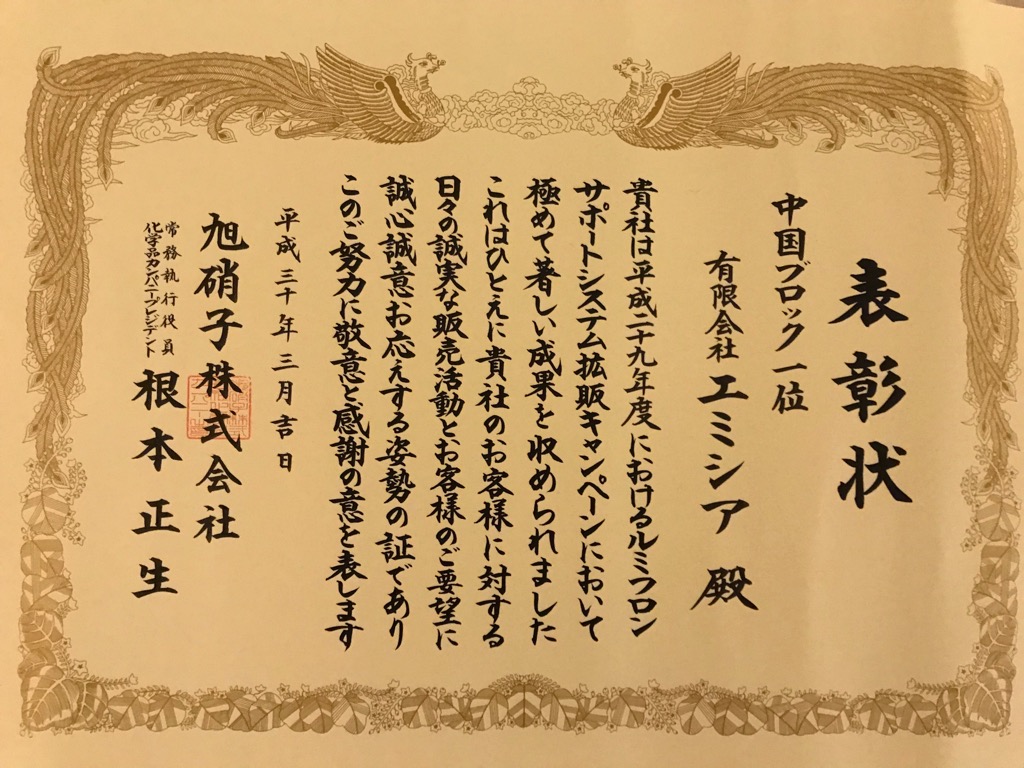 表彰状
中国ブロック一位
有限会社 エミシア 殿
貴社は平成二十九年度におけるルミフロン
サポートシステム拡販キャンペーンにおいて
極めて著しい成果を収められました
これはひとえに貴社のお客様に対する
日々の誠実な販売活動とお客様のご要望に
誠心誠意お応えする姿勢の証であり
このご努力に敬意と感謝の意を表します
平成三十年三月吉日
旭硝子株式会社
常務執行役員
化学品カンパニープレジデント
根本正生